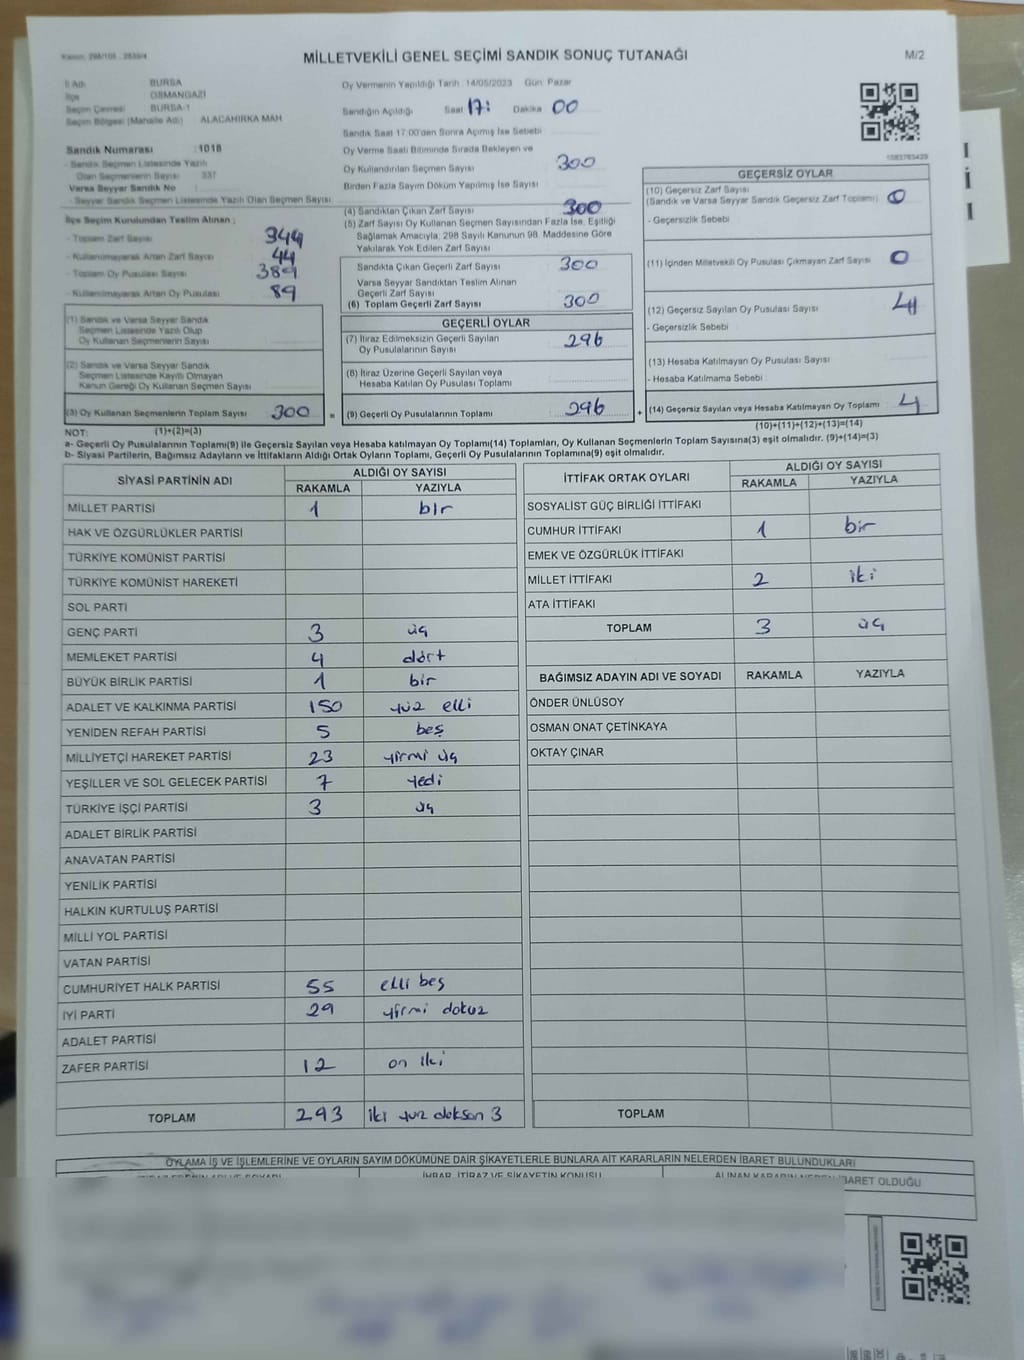 MİLLETVEKİLİ GENEL SEÇİMİ SANDIK SONUÇ TUTANAĞI
M/2
İl Adı BURSA
İlçe OSMANGAZİ
Seçim Çevresi BURSA-1
Seçim Bölgesi (Mahalle Adı) ALACAHIRKA MAH
Sandık Numarası :1018
- Sandık Seçmen Listesinde Yazılı
Olan Seçmenlerin Sayısı 337
Varsa Seyyar Sandık No
- Seyyar Sandık Seçmen Listesinde Yazılı Olan Seçmen Sayısı
İlçe Seçim Kurulundan Teslim Alınan ;
- Toplam Zarf Sayısı 344
- Kullanılmayarak Artan Zarf Sayısı 44
- Toplam Oy Pusulası Sayısı 389
- Kullanılmayarak Artan Oy Pusulası 89
(1) Sandık ve Varsa Seyyar Sandık
Seçmen Listesinde Yazılı Olup
Oy Kullanan Seçmenlerin Sayısı
(2) Sandık ve Varsa Seyyar Sandık
Seçmen Listesinde Kayıtlı Olmayan
Kanun Gereği Oy Kullanan Seçmen Sayısı
(3) Oy Kullanan Seçmenlerin Toplam Sayısı 300 =
Oy Vermenin Yapıldığı Tarih :14/05/2023 Gün Pazar
Sandığın Açıldığı Saat 17: Dakika 00
Sandık Saat 17:00'den Sonra Açımış İse Sebebi
Oy Verme Saati Bitiminde Sırada Bekleyen ve
Oy Kullandırılan Seçmen Sayısı 300
Birden Fazla Sayım Döküm Yapılmış İse Sayısı
(4) Sandıktan Çıkan Zarf Sayısı 300
(5) Zarf Sayısı Oy Kullanan Seçmen Sayısından Fazla İse, Eşitliği
Sağlamak Amacıyla, 298 Sayılı Kanunun 98. Maddesine Göre
Yakılarak Yok Edilen Zarf Sayısı
Sandıkta Çıkan Geçerli Zarf Sayısı 300
Varsa Seyyar Sandıktan Teslim Alınan
Geçerli Zarf Sayısı
(6) Toplam Geçerli Zarf Sayısı 300
GEÇERLİ OYLAR
(7) İtiraz Edilmeksizin Geçerli Sayılan
Oy Pusulalarının Sayısı 296
(8) İtiraz Üzerine Geçerli Sayılan veya
Hesaba Katılan Oy Pusulası Toplamı
(9) Geçerli Oy Pusulalarının Toplamı 296 +
GEÇERSİZ OYLAR
(10) Geçersiz Zarf Sayısı 0
(Sandık ve Varsa Seyyar Sandık Geçersiz Zarf Toplamı)
- Geçersizlik Sebebi
(11) İçinden Milletvekili Oy Pusulası Çıkmayan Zarf Sayısı 0
(12) Geçersiz Sayılan Oy Pusulası Sayısı 4
- Geçersizlik Sebebi :
(13) Hesaba Katılmayan Oy Pusulası Sayısı
- Hesaba Katılmama Sebebi
(14) Geçersiz Sayılan veya Hesaba Katılmayan Oy Toplamı 4
NOT: (1)+(2)=(3)
(10)+(11)+(12)+(13)=(14)
a- Geçerli Oy Pusulalarının Toplamı(9) ile Geçersiz Sayılan veya Hesaba katılmayan Oy Toplamı(14) Toplamları, Oy Kullanan Seçmenlerin Toplam Sayısına(3) eşit olmalıdır. (9)+(14)=(3)
b- Siyasi Partilerin, Bağımsız Adayların ve İttifakların Aldığı Ortak Oyların Toplamı, Geçerli Oy Pusulalarının Toplamına(9) eşit olmalıdır.
SİYASİ PARTİNİN ADI
ALDIĞI OY SAYISI
RAKAMLA YAZIYLA
MİLLET PARTİSİ 1 bir
HAK VE ÖZGÜRLÜKLER PARTİSİ
TÜRKİYE KOMÜNİST PARTİSİ
TÜRKİYE KOMÜNİST HAREKETİ
SOL PARTİ
GENÇ PARTİ 3 üç
MEMLEKET PARTİSİ 4 dört
BÜYÜK BİRLİK PARTİSİ 1 bir
ADALET VE KALKINMA PARTİSİ 150 yüz elli
YENİDEN REFAH PARTİSİ 5 beş
MİLLİYETÇİ HAREKET PARTİSİ 23 yirmi üç
YEŞİLLER VE SOL GELECEK PARTİSİ 7 yedi
TÜRKİYE İŞÇİ PARTİSİ 3 üç
ADALET BİRLİK PARTİSİ
ANAVATAN PARTİSİ
YENİLİK PARTİSİ
HALKIN KURTULUŞ PARTİSİ
MİLLİ YOL PARTİSİ
VATAN PARTİSİ
CUMHURİYET HALK PARTİSİ 55 elli beş
İYİ PARTİ 29 yirmi dokuz
ADALET PARTİSİ
ZAFER PARTİSİ 12 on iki
TOPLAM 293 iki yüz doksan 3
İTTİFAK ORTAK OYLARI
ALDIĞI OY SAYISI
RAKAMLA YAZIYLA
SOSYALİST GÜÇ BİRLİĞİ İTTİFAKI
CUMHUR İTTİFAKI 1 bir
EMEK VE ÖZGÜRLÜK İTTİFAKI
MİLLET İTTİFAKI 2 iki
ATA İTTİFAKI
TOPLAM 3 üç
BAĞIMSIZ ADAYIN ADI VE SOYADI RAKAMLA YAZIYLA
ÖNDER ÜNLÜSOY
OSMAN ONAT ÇETİNKAYA
OKTAY ÇINAR
TOPLAM
OYLAMA İŞ VE İŞLEMLERİNE VE OYLARIN SAYIM DÖKÜMÜNE DAİR ŞİKAYETLERLE BUNLARA AİT KARARLARIN NELERDEN İBARET BULUNDUKLARI
İHBAR, İTİRAZ VE ŞİKAYETİN KONUSU